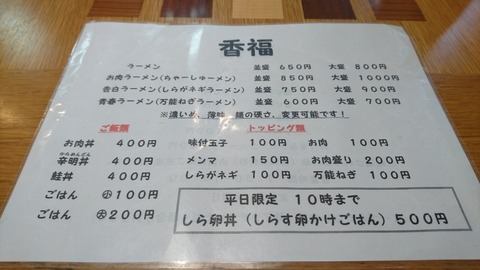 香福
ラーメン 並盛 650円 大盛 800円
お肉ラーメン(ちゃーしゅーメン) 並盛 850円 大盛 1000円
告白ラーメン(しらがネギラーメン) 並盛 750円 大盛 900円
青春ラーメン(万能ねぎラーメン) 並盛 600円 大盛 700円
※濃いめ、薄味、麺の硬さ、変更可能です!
ご飯類 トッピング類
お肉丼 400円 味付玉子 100円 お肉 100円
辛明丼 400円 メンマ 150円 お肉盛り 200円
鮭丼 400円 しらがネギ 100円 万能ねぎ 100円
ごはん ㊛100円
ごはん 200円
平日限定 10時まで
しら卵丼(しらす卵かけごはん)500円